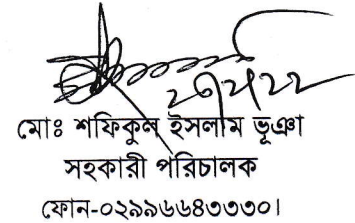 মোঃ শফিকুল ইসলাম ভূঞা
সহকারী পরিচালক
ফোন-০২৯৯৬৬৪৩৩৩০।